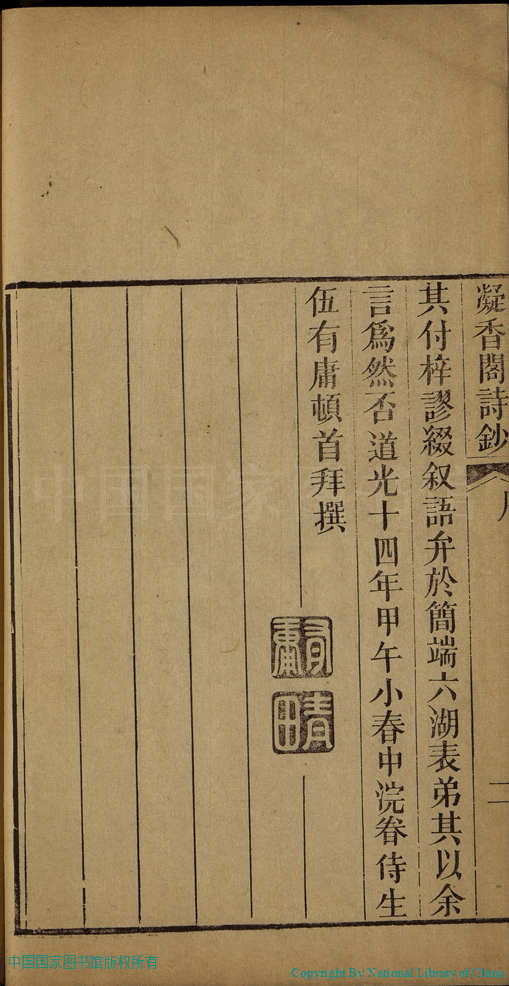 凝香閣詩鈔
二
其付梓謬綴叙語弁於簡端六湖表弟其以余
言爲然否道光十四年甲午小春中浣眷侍生
伍有庸頓首拜撰
有庸
春田
中国国家图书馆版权所有
Copyright By National Library of China